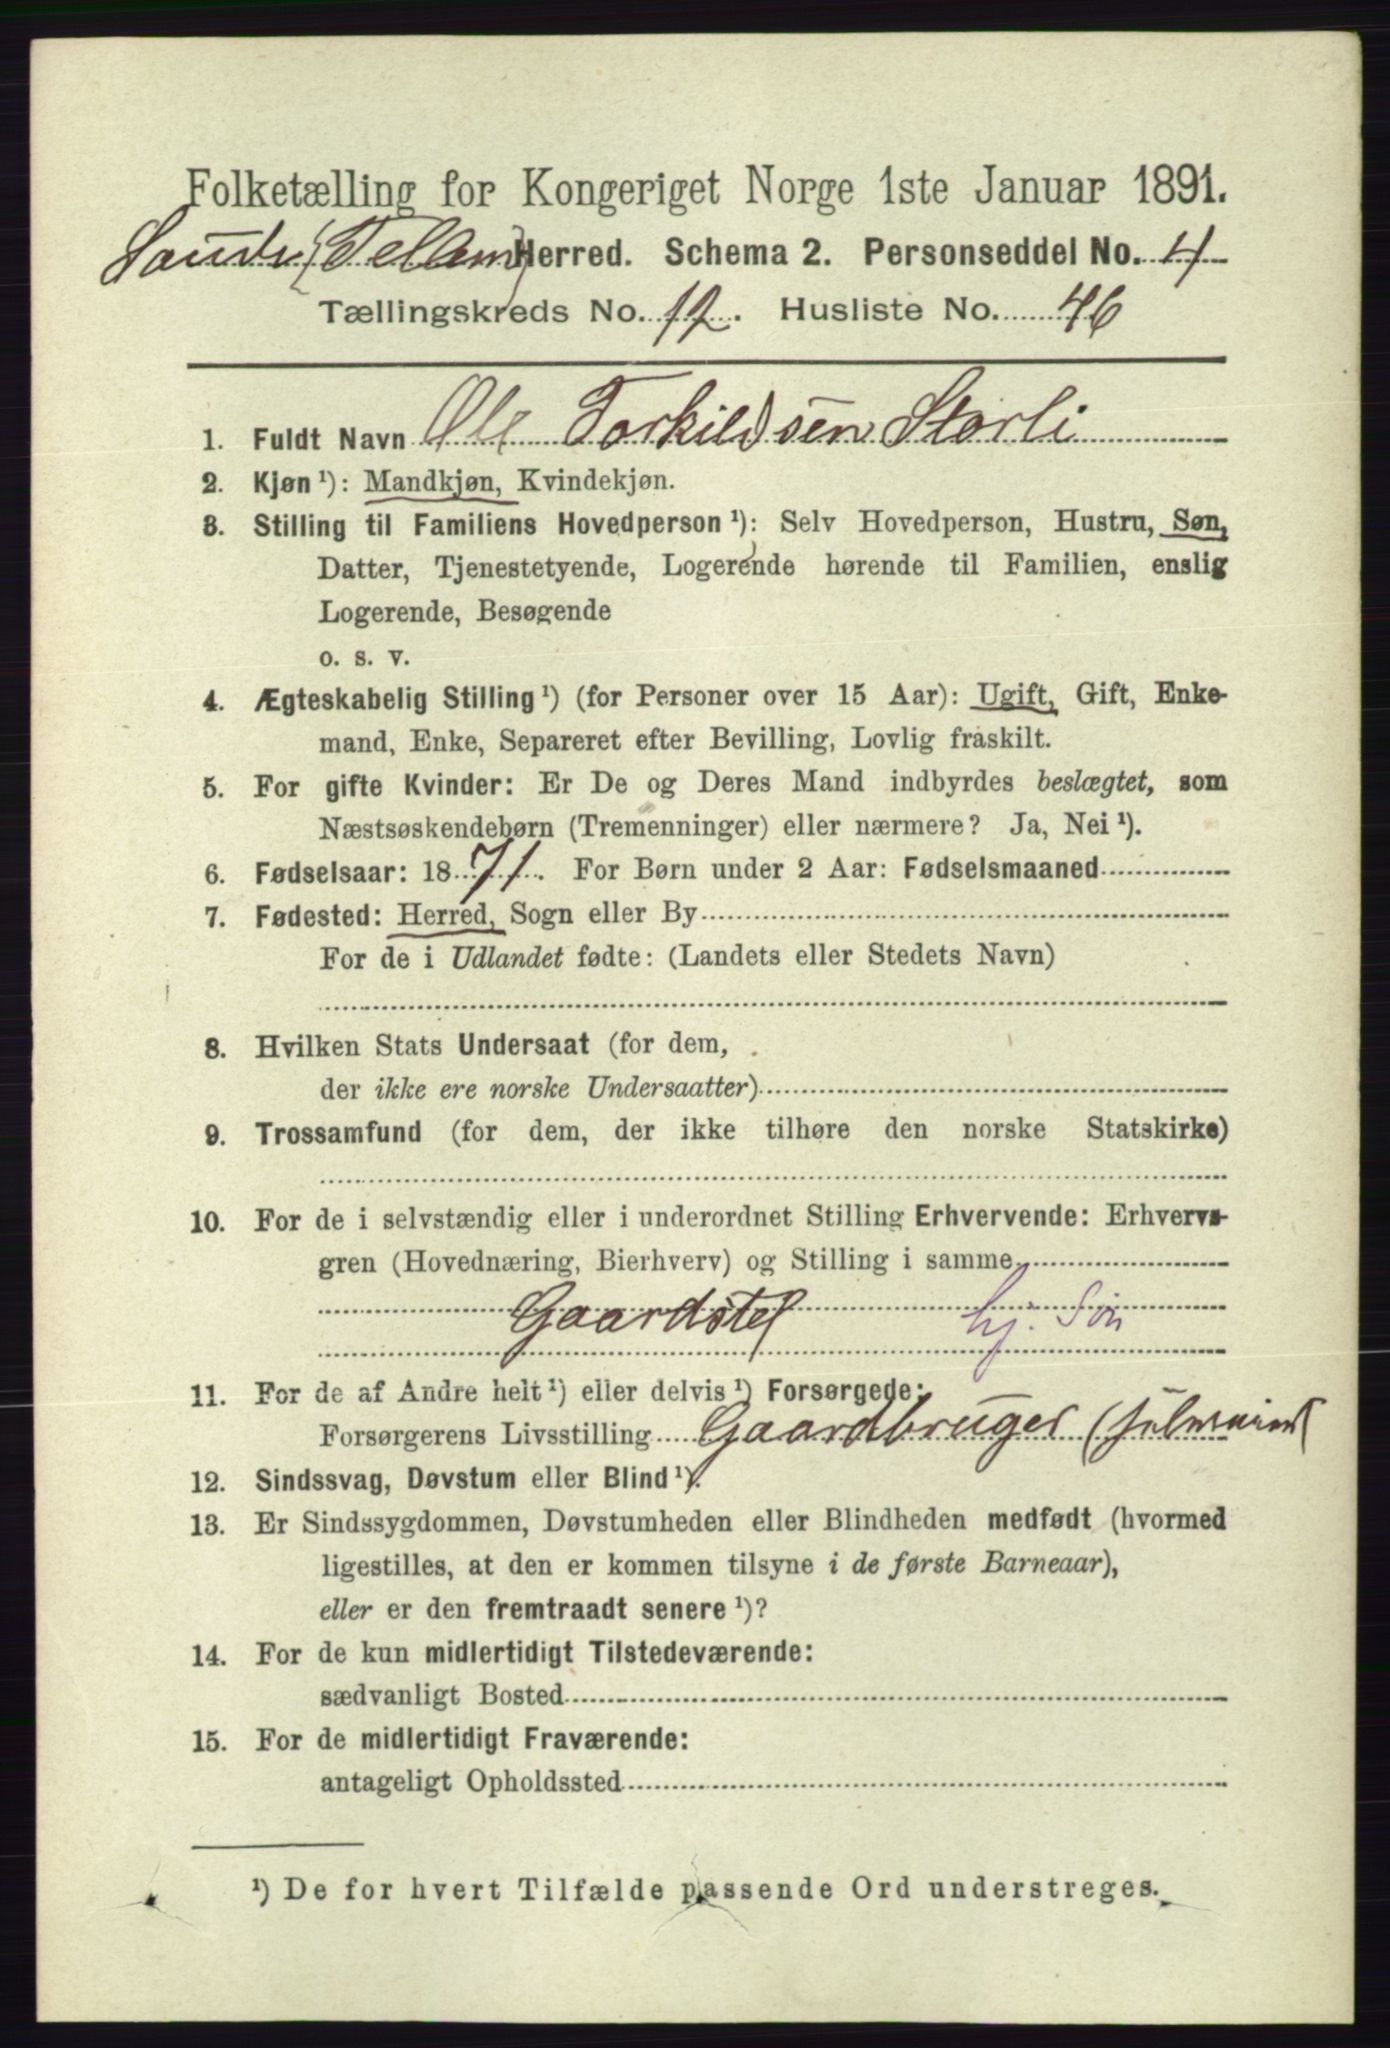 Folketælling for Kongeriget Norge 1ste Januar 1891.
Saude (Telem) Herred. Schema 2. Personseddel No. 4
Tællingskreds No. 12. Husliste No. 46
1. Fuldt Navn Ole Torkildsen Storli
2. Kjøn ¹): Mandkjøn, Kvindekjøn.
3. Stilling til Familiens Hovedperson ¹): Selv Hovedperson, Hustru, Søn,
Datter, Tjenestetyende, Logerende hørende til Familien, enslig
Logerende, Besøgende
o. s. v.
4. Ægteskabelig Stilling ¹) (for Personer over 15 Aar): Ugift, Gift, Enke-
mand, Enke, Separeret efter Bevilling, Lovlig fraskilt.
5. For gifte Kvinder: Er De og Deres Mand indbyrdes beslægtet, som
Næstsøskendebørn (Tremenninger) eller nærmere? Ja, Nei ¹).
6. Fødselsaar: 1871. For Børn under 2 Aar: Fødselsmaaned
7. Fødested: Herred, Sogn eller By
For de i Udlandet fødte: (Landets eller Stedets Navn)
8. Hvilken Stats Undersaat (for dem,
der ikke ere norske Undersaatter)
9. Trossamfund (for dem, der ikke tilhøre den norske Statskirke)
10. For de i selvstændig eller i underordnet Stilling Erhvervende: Erhvervs-
gren (Hovednæring, Bierhverv) og Stilling i samme
Gaardstel hj. Søn
11. For de af Andre helt ¹) eller delvis ¹) Forsørgede:
Forsørgerens Livsstilling Gaardbruger
12. Sindssvag, Døvstum eller Blind ¹).
13. Er Sindssygdommen, Døvstumheden eller Blindheden medfødt (hvormed
ligestilles, at den er kommen tilsyne i de første Barneaar),
eller er den fremtraadt senere ¹)?
14. For de kun midlertidigt Tilstedeværende:
sædvanligt Bosted
15. For de midlertidigt Fraværende:
antageligt Opholdssted
¹) De for hvert Tilfælde passende Ord understreges.